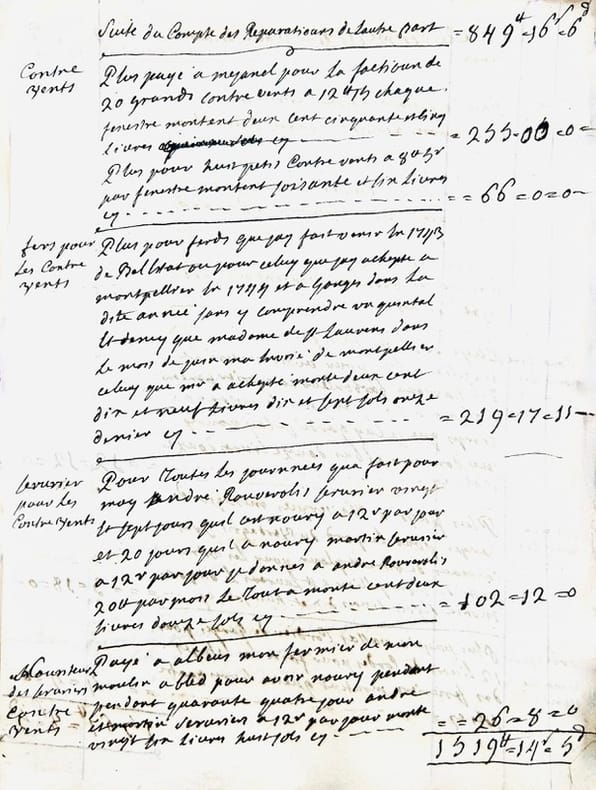 Suitte du Compte des Reparations de Lautre part = 849tt=16s=6d
Contre vents
Plus payé a mejanel pour la factioun de
20 grands contre vents a 12tt 15 chaque
fenestre montent deux cent cinquante et cinq
livres cy = 255=00=0=
Plus pour huit petis Contre vents a 8tt 5s
par fenestre montent soisante et six Livres
cy = = 66=0=0=
fers pour Les Contre vents
Plus pour ferds que jay fait venir en 1743
de ou pour celuy que jay achepte a
montpellier en 1744 et a Ganges dans La
dite année sans y comprendre un quintal
et demy que madame de St Laurens dans
Le mois de juin ma envoié de montpellier
celuy que mr a achepté monte deux cent
dix et neuf Livres dix et sept sols onze
denier cy = 219=17=11=
serurier pour Les Contre vents
Pour Toutes Les journnées qua fait pour
moy andré Rouverolis serurier vingt
et sept jours quil est noury a 12s par jour
et 20 jours quil a noury martin serurier
a 12s par jour je donnes a andre Rouverolis
20tt par mois Le Tout a monté cent deux
Livres douze sols cy = 102=12=0
Nouriture des seruriers Contre vents
Payé a albous mon fermier de mon
moulin a bled pour avoir noury pendant
pendant quarante quatre jour andre
et martin seruriers a 12s par jour monte
vingt six Livres huit sols cy = = 26=8=0
1519tt=14s=5d